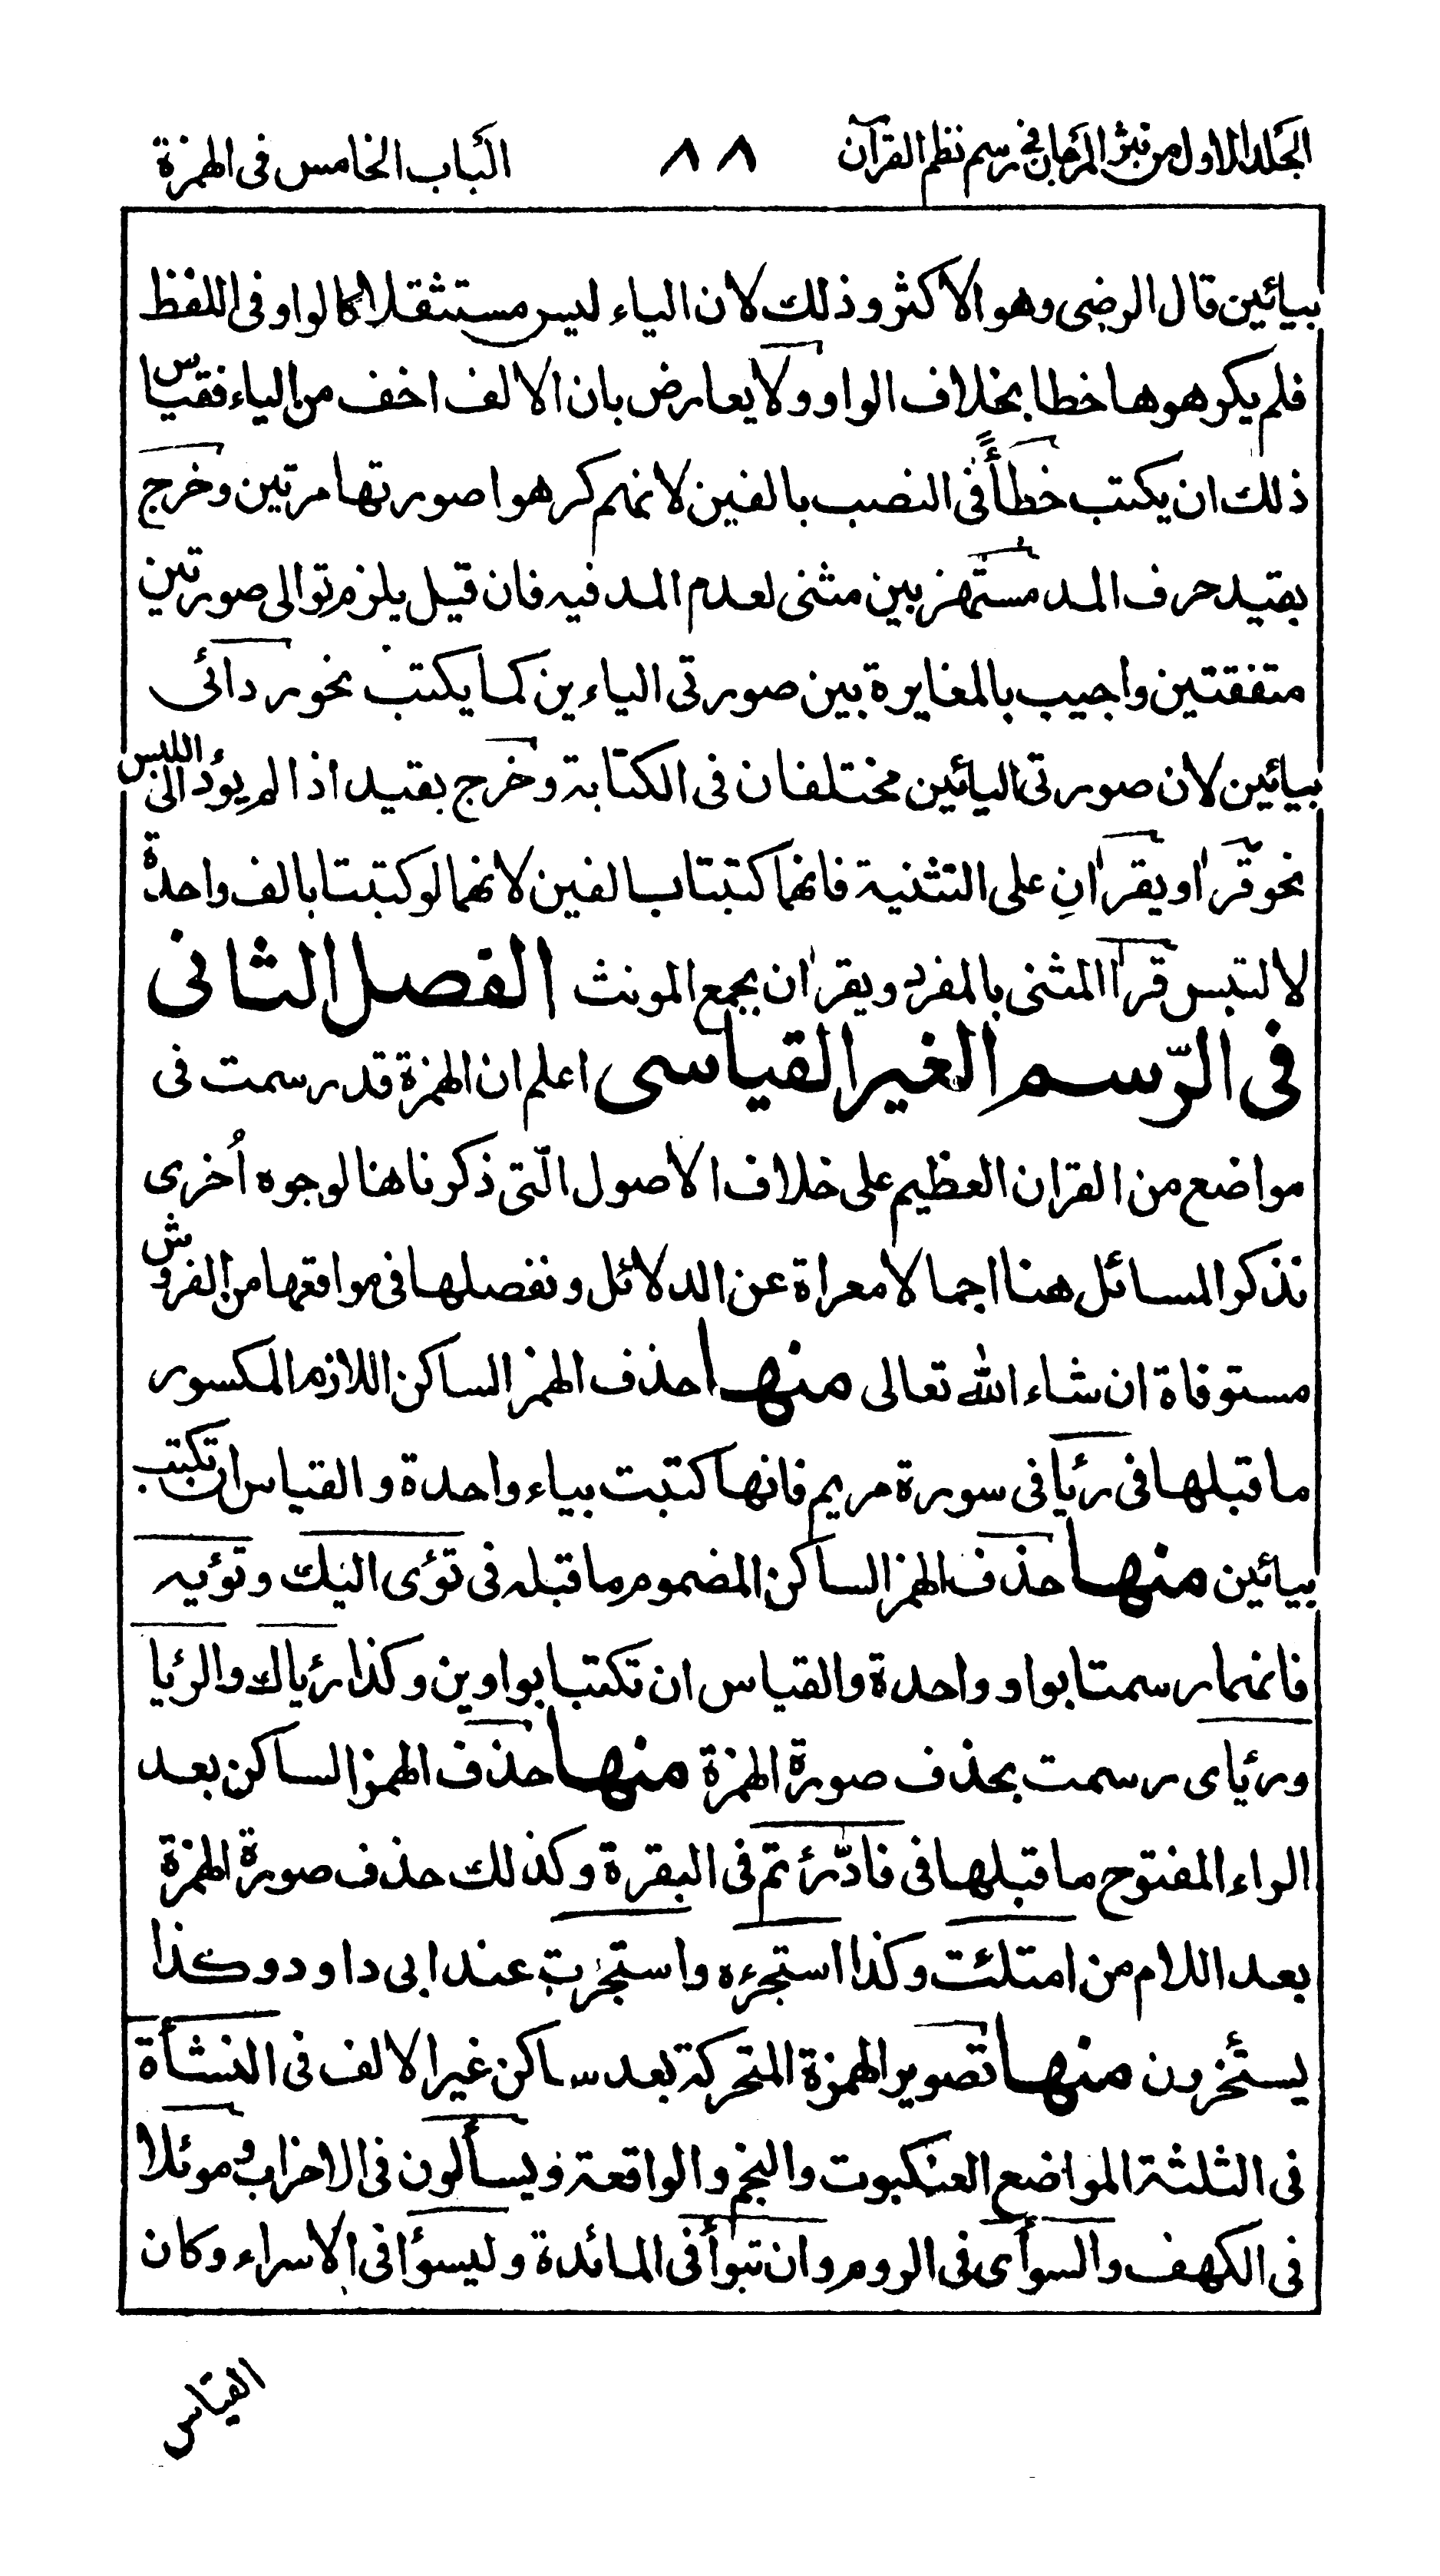 الجلد الاول من نثر المرجان فى رسم نظم القرآن ٨٨ الباب الخامس فى الهمزة
بيائين قال الرضى وهو الاكثر وذلك لان الياء ليس مستثقلا كالواو فى اللفظ
فلم يكرهوها خطا بخلاف الواو ولا يعارض بان الالف اخف من الياء فقياس
ذلك ان يكتب خطأً فى النصب بالفين لانهم كرهوا صورتها مرتين وخرج
بقيد حرف المد مستهزءين مثنى لعدم المد فيه فان قيل يلزم توالى صورتين
متفقتين واجيب بالمغايرة بين صورتى الياءين كما يكتب نحو ردائى
بيائين لان صورتى اليائين مختلفان فى الكتابة وخرج بقيد اذا لم يؤد الى اللبس
نحو قرا او يقران على التثنية فانهما كتبتا بالفين لانهما لو كتبتا بالف واحدة
لالتبس قرا المثنى بالمفرد ويقران بجمع المونث الفصل الثانى
فى الرّسم الغير القياسى اعلم ان الهمزة قد رسمت فى
مواضع من القران العظيم على خلاف الاصول الّتى ذكرناها لوجوه اُخرى
نذكر المسائل هنا اجمالا معراة عن الدلائل ونفصلها فى مواقعها من الفروش
مستوفاة ان شاء الله تعالى منها حذف الهمز الساكن اللازم المكسور
ما قبلها فى رئيا فى سورة مريم فانها كتبت بياء واحدة والقياس ان تكتب
بيائين منها حذف الهمز الساكن المضموم ما قبله فى تؤى اليك وتؤيه
فانهما رسمتا بواو واحدة والقياس ان تكتبا بواوين وكذا رئياك والرئيا
ورئياى رسمت بحذف صورة الهمزة منها حذف الهمز الساكن بعد
الراء المفتوح ما قبلها فى فادّرئتم فى البقرة وكذلك حذف صورة الهمزة
بعد اللام من امتلئت وكذا استجرءه واستجرت عند ابى داود وكذا
يستئخرون منها تصوير الهمزة المتحركة بعد ساكن غير الالف فى النشأة
فى الثلثة المواضع العنكبوت والنجم والواقعة ويسألون فى الاحزاب وموئلا
فى الكهف والسوأى فى الروم وان تبوأ فى المائدة وليسؤا فى الاسراء وكان
القياس